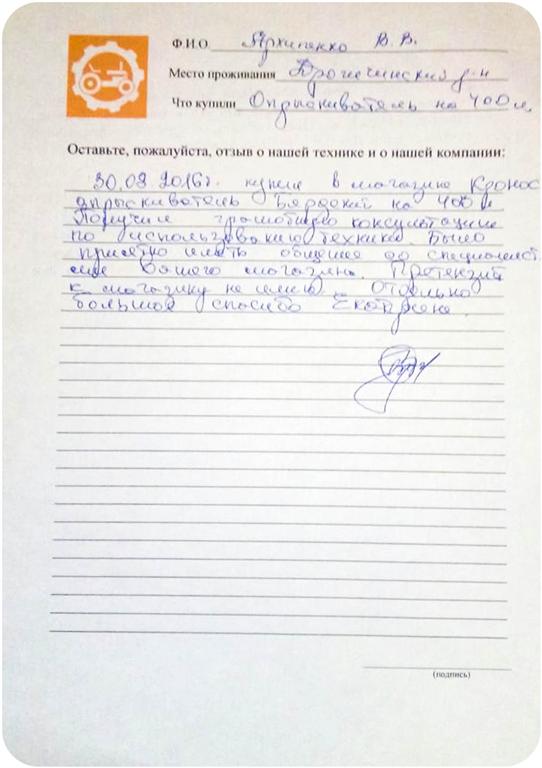 Ф.И.О. Архипенко В. В.
Место проживания Дрогичинский р-н
Что купили Опрыскиватель на 400 л.
Оставьте, пожалуйста, отзыв о нашей технике и о нашей компании:
30.08 2016г. купил в магазине Кронос
опрыскиватель на 400 л
Получил грамотную консультацию
по использованию техники. Было
приятно иметь общение со специалист.
вашего магазина. Претензий
к магазину не имею. Отдельно
большое спасибо
(подпись)